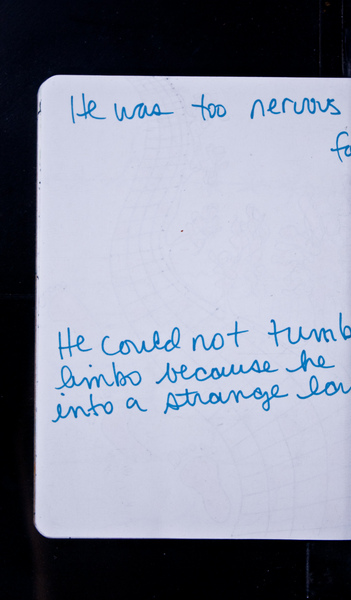 He was too nervous
He could not
limbo because he
into a strange